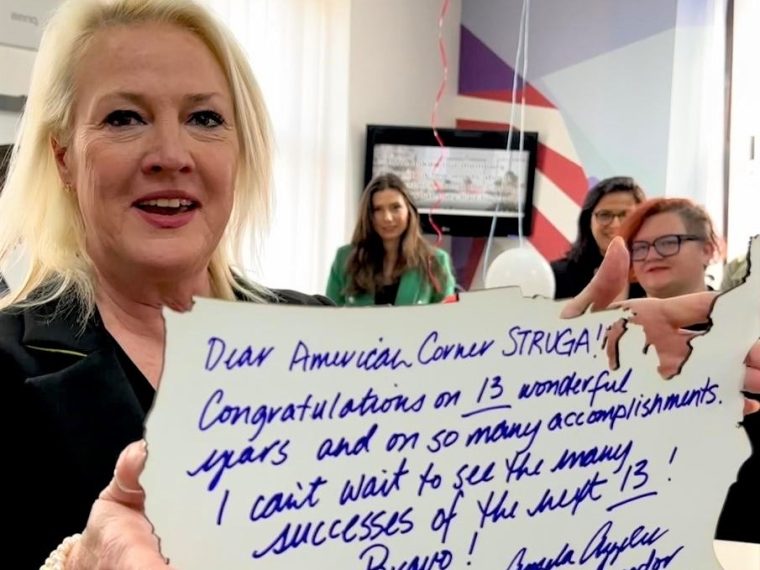 Dear American Corner STRUGA!
Congratulations on 13 wonderful
years and on so many accomplishments.
I can't wait to see the many
successes of the next 13!
Bravo!